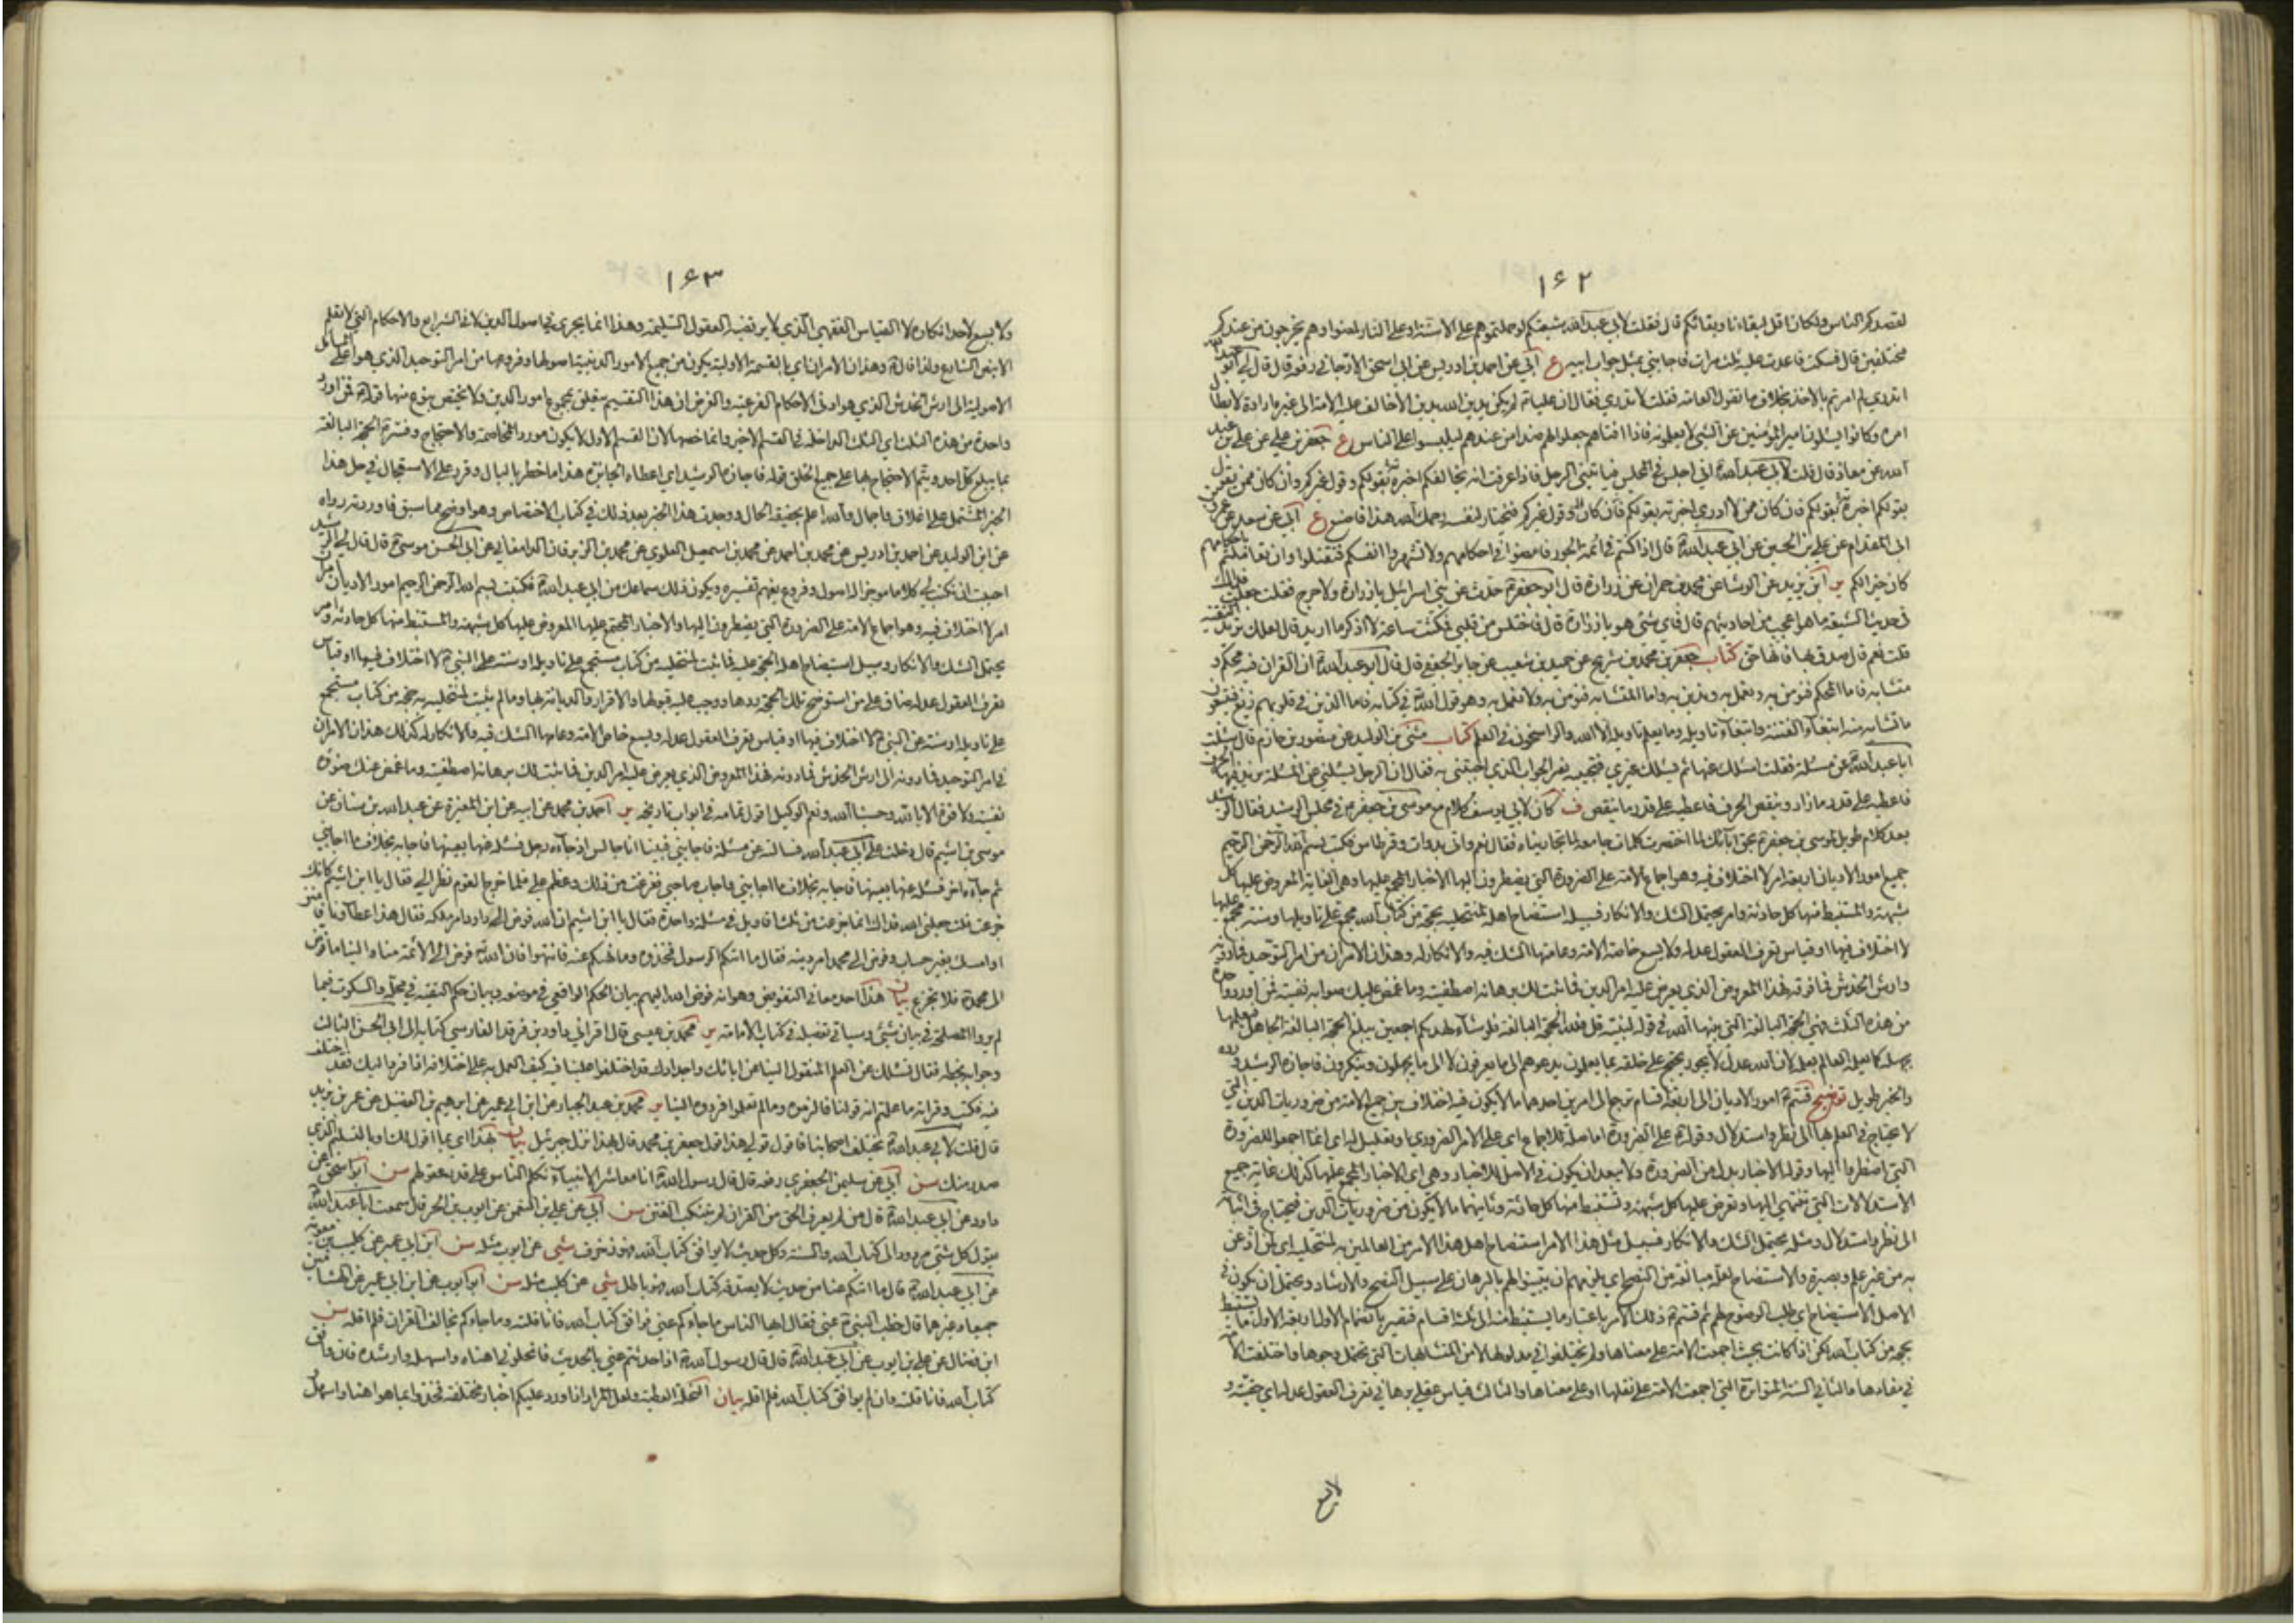 ١۶٢
لقصدكم الناس ولكان اقل لبقاءنا وبقائكم قال فقلت لابي عبدالله شيعتكم لو حملتموهم على الاسنة او على النار لمضوا وهم يخرجون من عندكم
مختلفين قال فسكت فاعدت عليه ثلث مرات فاجابني بمثل جواب ابيه ع ابي عن احمد بن ادريس عن ابي اسحق الارجاني رفعه قال قال لي ابو عبدالله
اتدري لم امرتم بالاخذ بخلاف ما تقول العامة فقلت لا ندري فقال ان عليا لم يكن يدين الله بدين الا خالف عليه الامة الى غيره ارادة لابطال
امره وكانوا يسئلون امير المؤمنين عن الشيء لا يعلمونه فاذا افتاهم جعلوا لهم ضدا من عندهم ليلبسوا على الناس ع جعفر بن علي عن علي بن عبد
الله عن معاذ قال قلت لابي عبدالله اني اجلس في المجلس فياتيني الرجل فاذا عرفت انه يخالفكم اخبرته بقول غيركم وان كان ممن يقول
بقولكم اخبرته بقولكم فان كان ممن لا ادري اخبرته بقولكم وقول غيركم فيختار لنفسه قال رحمك الله هكذا فاصنع ع ابي عن سعد عن عمرو بن
ابي المقدام عن علي بن الحسين عن ابي عبدالله قال اذا كنتم في ائمة الجور فامضوا في احكامهم ولا تشهروا انفسكم فتقتلوا وان تعاملتم باحكامهم
كان خيرا لكم ير ابن يزيد عن الوشا عن محمد بن حمران عن زرارة قال قال ابو جعفر حدث عن بني اسرائيل يا زرارة ولا حرج فقلت جعلت فداك
في حديث الشيعة ما هو اعجب من احاديثهم قال فاي شيء هو يا زرارة قال فاختلس من قلبي فمكثت ساعة لا اذكر ما اريد قال لعلك تريد التقية
قلت نعم قال صدق بها فانها حق كتاب جعفر بن محمد بن شريح عن حميد بن شعيب عن جابر الجعفي قال قال ابو عبدالله ان القران فيه محكم و
متشابه فاما المحكم فنؤمن به ونعمل به وندين به واما المتشابه فنؤمن به ولا نعمل به وهو قول الله في كتابه فاما الذين في قلوبهم زيغ فيتبعون
ما تشابه منه ابتغاء الفتنة وابتغاء تاويله وما يعلم تاويله الا الله والراسخون في العلم كتاب مثنى بن الوليد عن منصور بن حازم قال سئلت
ابا عبدالله عن مسئلة فقلت اسئلك عنها ثم يسئلك غيري فتجيبه بغير الجواب الذي اجبتني به فقال ان الرجل يسئلني عن المسئلة يزيد فيها الحرف
فاعطيه على قدر ما زاد وينقص الحرف فاعطيه على قدر ما ينقص ف كان لابي يوسف كلام مع موسى بن جعفر في مجلس الرشيد فقال الرشيد
بعد كلام طويل لموسى بن جعفر بحق ابائك لما اختصرت كلمات جامعة لما تجاريناه فقال نعم واتي بدواة وقرطاس فكتب بسم الله الرحمن الرحيم
جميع امور الاديان اربعة امر لا اختلاف فيه وهو اجماع الامة على الضرورة التي يضطرون اليها الاخبار المجمع عليها وهي الغاية المعروض عليها كل
شبهة والمستنبط منها كل حادثة وامر يحتمل الشك والانكار فسبيله استيضاح اهله لمنتحليه بحجة من كتاب الله مجمع على تاويلها وسنة مجمع عليها
لا اختلاف فيها او قياس تعرف العقول عدله ولا يسع خاصة الامة وعامتها الشك فيه والانكار له وهذان الامران من امر التوحيد فما دونه
وارش الخدش فما فوقه فهذا المعروض الذي يعرض عليه امر الدين فما ثبت لك برهانه اصطفيته وما غمض عليك صوابه نفيته فمن اورد واحدة
من هذه الثلث فهي الحجة البالغة التي بينها الله في قوله لنبيه قل فلله الحجة البالغة فلو شاء لهديكم اجمعين يبلغ الحجة البالغة الجاهل فيعلمها
بجهله كما يعلمه العالم بعلمه لان الله عدل لا يجور يحتج على خلقه بما يعلمون يدعوهم الى ما يعرفون لا الى ما يجهلون وينكرون فاجازه الرشيد ورده
والخبر طويل توضيح قسم امور الاديان الى اربعة اقسام ترجع الى امرين احدهما ما لا يكون فيه اختلاف بين جميع الامة من ضروريات الدين التي
لا يحتاج في العلم بها الى نظر واستدلال وقوله على الضرورة اما صلة للاجماع اي على الامر الضروري او تعليل له اي انما اجمعوا للضرورة
التي اضطروا اليها وقوله الاخبار بدل من الضرورة ولا يبعد ان يكون في الاصل للاخبار وهي اي الاخبار المجمع عليها كذلك غاية جميع
الاستدلالات التي تنتهي اليها وتعرض عليها كل شبهة وتستنبط منها كل حادثة وثانيهما ما لا يكون من ضروريات الدين فيحتاج في اثباته
الى نظر واستدلال ومثله يحتمل الشك والانكار فسبيل مثل هذا الامر استيضاح اهل هذا الامر من العالمين به لمنتحليه اي لمن اذعن
به من غير علم وبصيرة والاستيضاح لعله مبالغة من النصح اي يلزمهم ان يبينوا لهم بالبرهان على سبيل النصح والارشاد ويحتمل ان يكون في
الاصل الاستيضاح اي طلب الوضوح لهم ثم قسم ذلك الامر باعتبار ما يستنبط منه الى ثلثة اقسام فتصير بانضمام الاول اربعة الاول ما يستنبط
بحجة من كتاب الله لكن اذا كانت بحيث اجمعت الامة على معناها ولم يختلفوا في مدلولها لا من المتشابهات التي تحتمل وجوها واختلفت الامة
في مفادها والثاني السنة المتواترة التي اجمعت الامة على نقلها او على معناها والثالث قياس عقلي برهاني تعرف العقول عدله اي حقيته و
لا يسع
١۶٣
ولا يسع لاحد انكاره لا القياس الفقهي الذي لا يرتضيه العقول السليمة وهذا انما يجري في اصول الدين لا في الشرايع والاحكام التي لا تعلم
الا بنص الشارع ولذا قال وهذان الامران اي بالقسمة الاولية يكون من جميع الامور الدينية اصولها وفروعها من امر التوحيد الذي هو اعلى المسائل
الاصولية الى ارش الخدش الذي هو ادنى الاحكام الفرعية والغرض ان هذا التقسيم متعلق بمجموع امور الدين ولا يختص بنوع منها قوله فمن اورد
واحدة من هذه الثلث اي الثلث الداخلة في القسم الاخير وانما خصها لان القسم الاول لا يكون مورد المخاصمة والاحتجاج وفسر الحجة البالغة
بما يبلغ كل احد ويتم الاحتجاج بها على جميع الخلق قوله فاجازه الرشيد اي اعطاه الجائزة هذا ما خطر بالبال وقرر على الاستعجال في حل هذا
الخبر المشتمل على اغلاق واجمال والله اعلم بحقيقة الحال ووجدت هذا الخبر بعد ذلك في كتاب الاختصاص وهو اوضح مما سبق فاوردته رواه
عن ابن الوليد عن احمد بن ادريس عن محمد بن احمد عن محمد بن اسمعيل العلوي عن محمد بن الزبرقان الدامغاني عن ابي الحسن موسى قال قال لي الرشيد
احببت ان تكتب لي كلاما موجزا له اصول وفروع يفهم تفسيره ويكون ذلك سماعك من ابي عبدالله فكتبت بسم الله الرحمن الرحيم امور الاديان امران
امر لا اختلاف فيه وهو اجماع الامة على الضرورة التي يضطرون اليها والاخبار المجتمع عليها المعروض عليها كل شبهة والمستنبط منها كل حادثة وامر
يحتمل الشك والانكار وسبيل استيضاح اهله الحجة عليه فما ثبت لمنتحليه من كتاب مستجمع على تاويله او سنة عن النبي لا اختلاف فيها او قياس
تعرف العقول عدله ضاق على من استوضح تلك الحجة ردها ووجب عليه قبولها والاقرار والديانة بها وما لم يثبت لمنتحليه به حجة من كتاب مستجمع
على تاويله او سنة عن النبي لا اختلاف فيها او قياس تعرف العقول عدله وسع خاص الامة وعامها الشك فيه والانكار له كذلك هذان الامران
من امر التوحيد فما دونه الى ارش الخدش فما دونه فهذا المعروض الذي يعرض عليه امر الدين فما ثبت لك برهانه اصطفيته وما غمض عنك ضوؤه
نفيته ولا قوة الا بالله وحسبنا الله ونعم الوكيل اقول تمامه في ابواب تاريخه ير احمد بن محمد عن ابيه عن ابن المغيرة عن عبدالله بن سنان عن
موسى بن اشيم قال دخلت على ابي عبدالله فسالته عن مسئلة فاجابني فبينا انا جالس اذ جاءه رجل فسئله عنها بعينها فاجابه بخلاف ما اجابني
ثم جاءه اخر فسئله عنها بعينها فاجابه بخلاف ما اجابني واجاب صاحبي ففزعت من ذلك وعظم علي فلما خرج القوم نظر الي فقال يا ابن اشيم كانك
جزعت قلت جعلني الله فداك انما جزعت من ثلث اقاويل في مسئلة واحدة فقال يا ابن اشيم ان الله فوض الى داود امر ملكه فقال هذا عطاؤنا فامنن
او امسك بغير حساب وفوض الى محمد امر دينه فقال ما اتيكم الرسول فخذوه وما نهيكم عنه فانتهوا فان الله فوض الى الائمة منا والينا ما فوض
الى محمد فلا تجزع بيان هذا احد معاني التفويض وهو انه فوض الله اليهم بيان الحكم الواقعي في موضعه وبيان حكم التقية في محله والسكوت فيما
لم يروا المصلحة في بيان شيء وسياتي تفصيله في كتاب الامامة ير محمد بن عيسى قال اقراني داود بن فرقد الفارسي كتابه الى ابي الحسن الثالث
وجوابه بخطه فقال نسئلك عن العلم المنقول الينا عن ابائك واجدادك قد اختلفوا علينا فيه كيف العمل به على اختلافه اذا نرد اليك فقد اختلف
فيه فكتب وقراته ما علمتم انه قولنا فالزموه وما لم تعلموا فردوه الينا ير محمد بن عبد الجبار عن ابن ابي عمير عن ابرهيم بن الفضيل عن عمر بن يزيد
قال قلت لابي عبدالله يختلف اصحابنا فاقول قولي هذا قول جعفر بن محمد قال بهذا نزل جبرئيل بيان بهذا اي بما اقول لك او بالتسليم الذي
صدر منك سن ابي عن سليمن الجعفري رفعه قال قال رسول الله انا معاشر الانبياء نكلم الناس على قدر عقولهم سن ابو اسحق عن
داود عن ابي عبدالله قال من لم يعرف الحق من القران لم يتنكب الفتن سن ابي عن علي بن النعمن عن ايوب بن الحر قال سمعت ابا عبدالله
يقول كل شيء مردود الى كتاب الله والسنة وكل حديث لا يوافق كتاب الله فهو زخرف شي عن ايوب مثله سن ابن ابي عمير عن كليب بن معوية
عن ابي عبدالله قال ما اتيكم عنا من حديث لا يصدقه كتاب الله فهو باطل شي عن كليب مثله سن ابو ايوب عن ابن ابي عمير عن الهشامين
جميعا وغيرهما قال خطب النبي بمنى فقال ايها الناس ما جاءكم عني فوافق كتاب الله فانا قلته وما جاءكم يخالف القران فلم اقله سن
ابن فضال عن علي بن ايوب عن ابي عبدالله قال قال رسول الله اذا حدثتم عني بالحديث فانحلوني اهناه واسهله وارشده فان وافق
كتاب الله فانا قلته وان لم يوافق كتاب الله فلم اقله بيان النحلة العطية ولعل المراد اذا ورد عليكم اخبار مختلفة فخذوا بما هو اهنا واسهل